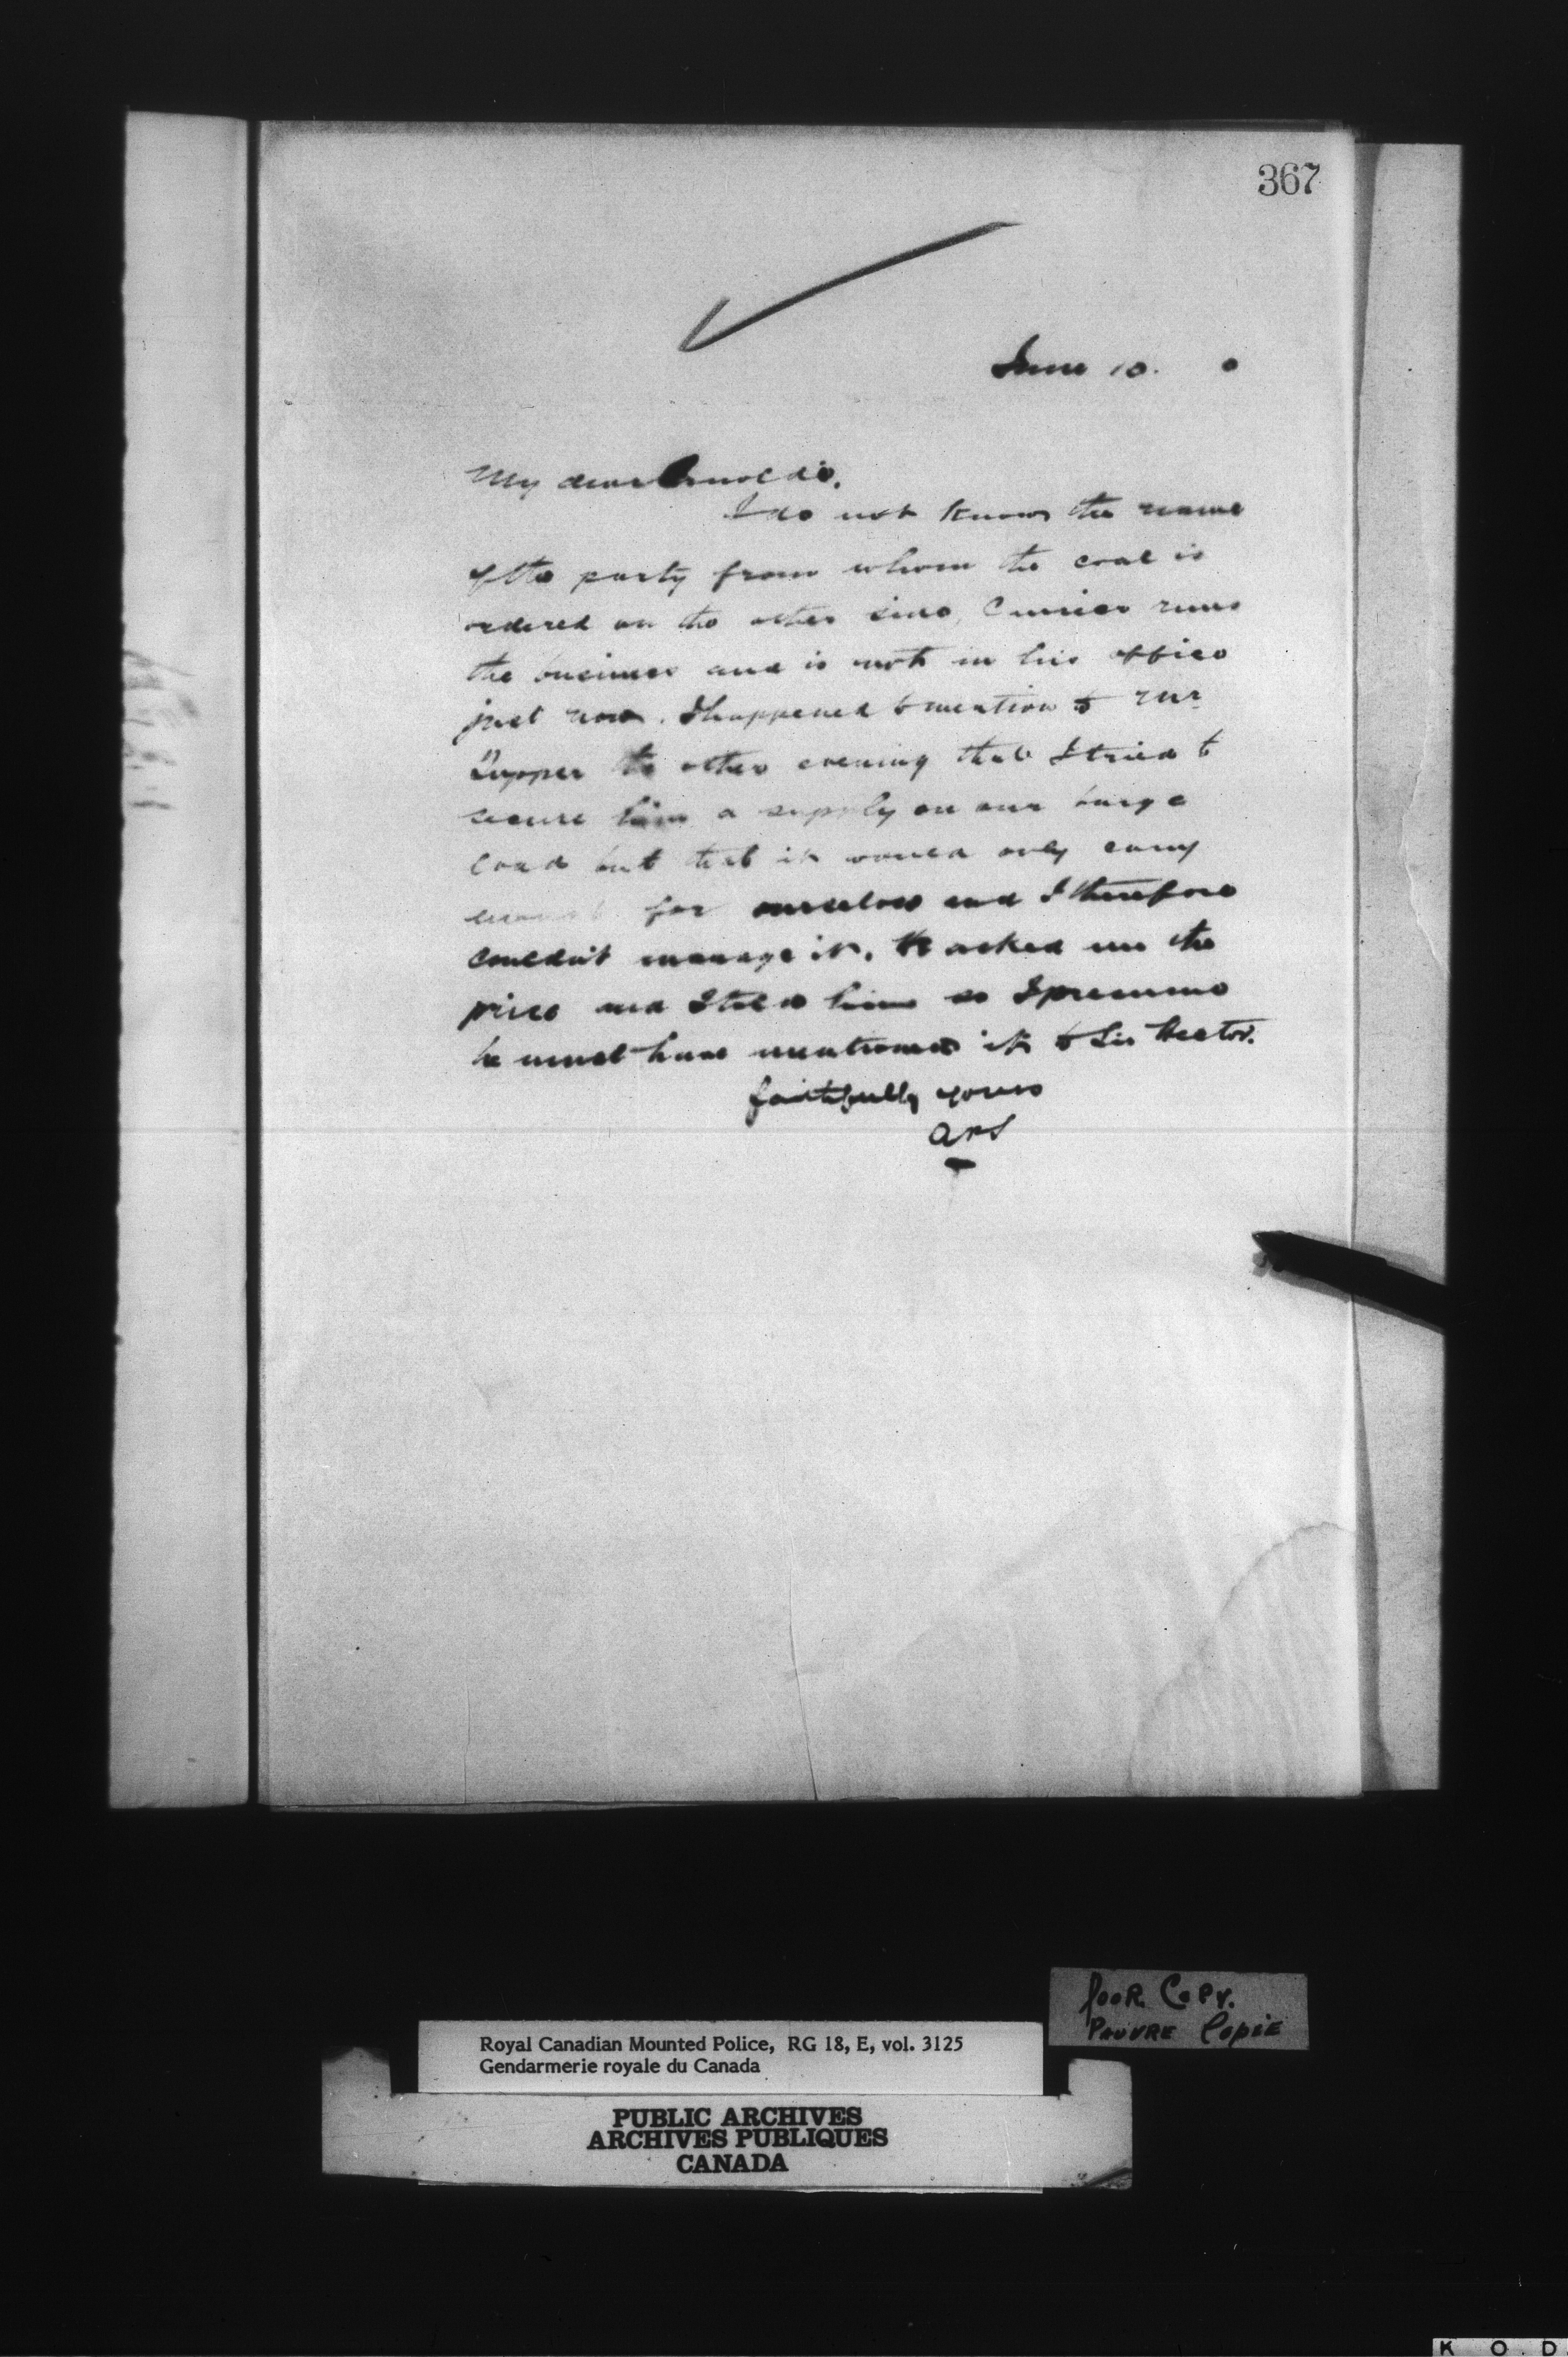 367
June 10. 0
My dear Arnoldi.
I do not know the name
of the party from whom the coal is
ordered on the other side, Currier runs
the business and is not in his office
just now. I happened to mention to Mr
Tupper the other evening that I tried to
secure him a supply on our barge
load but that it would only carry
enough for ourselves and I therefore
couldn't manage it. He asked me the
price and I told him so I presume
he must have mentioned it to Sir Hector.
faithfully yours
Poor Copy.
Pauvre Copie
Royal Canadian Mounted Police, RG 18, E, vol. 3125
Gendarmerie royale du Canada
PUBLIC ARCHIVES
ARCHIVES PUBLIQUES
CANADA
K O D